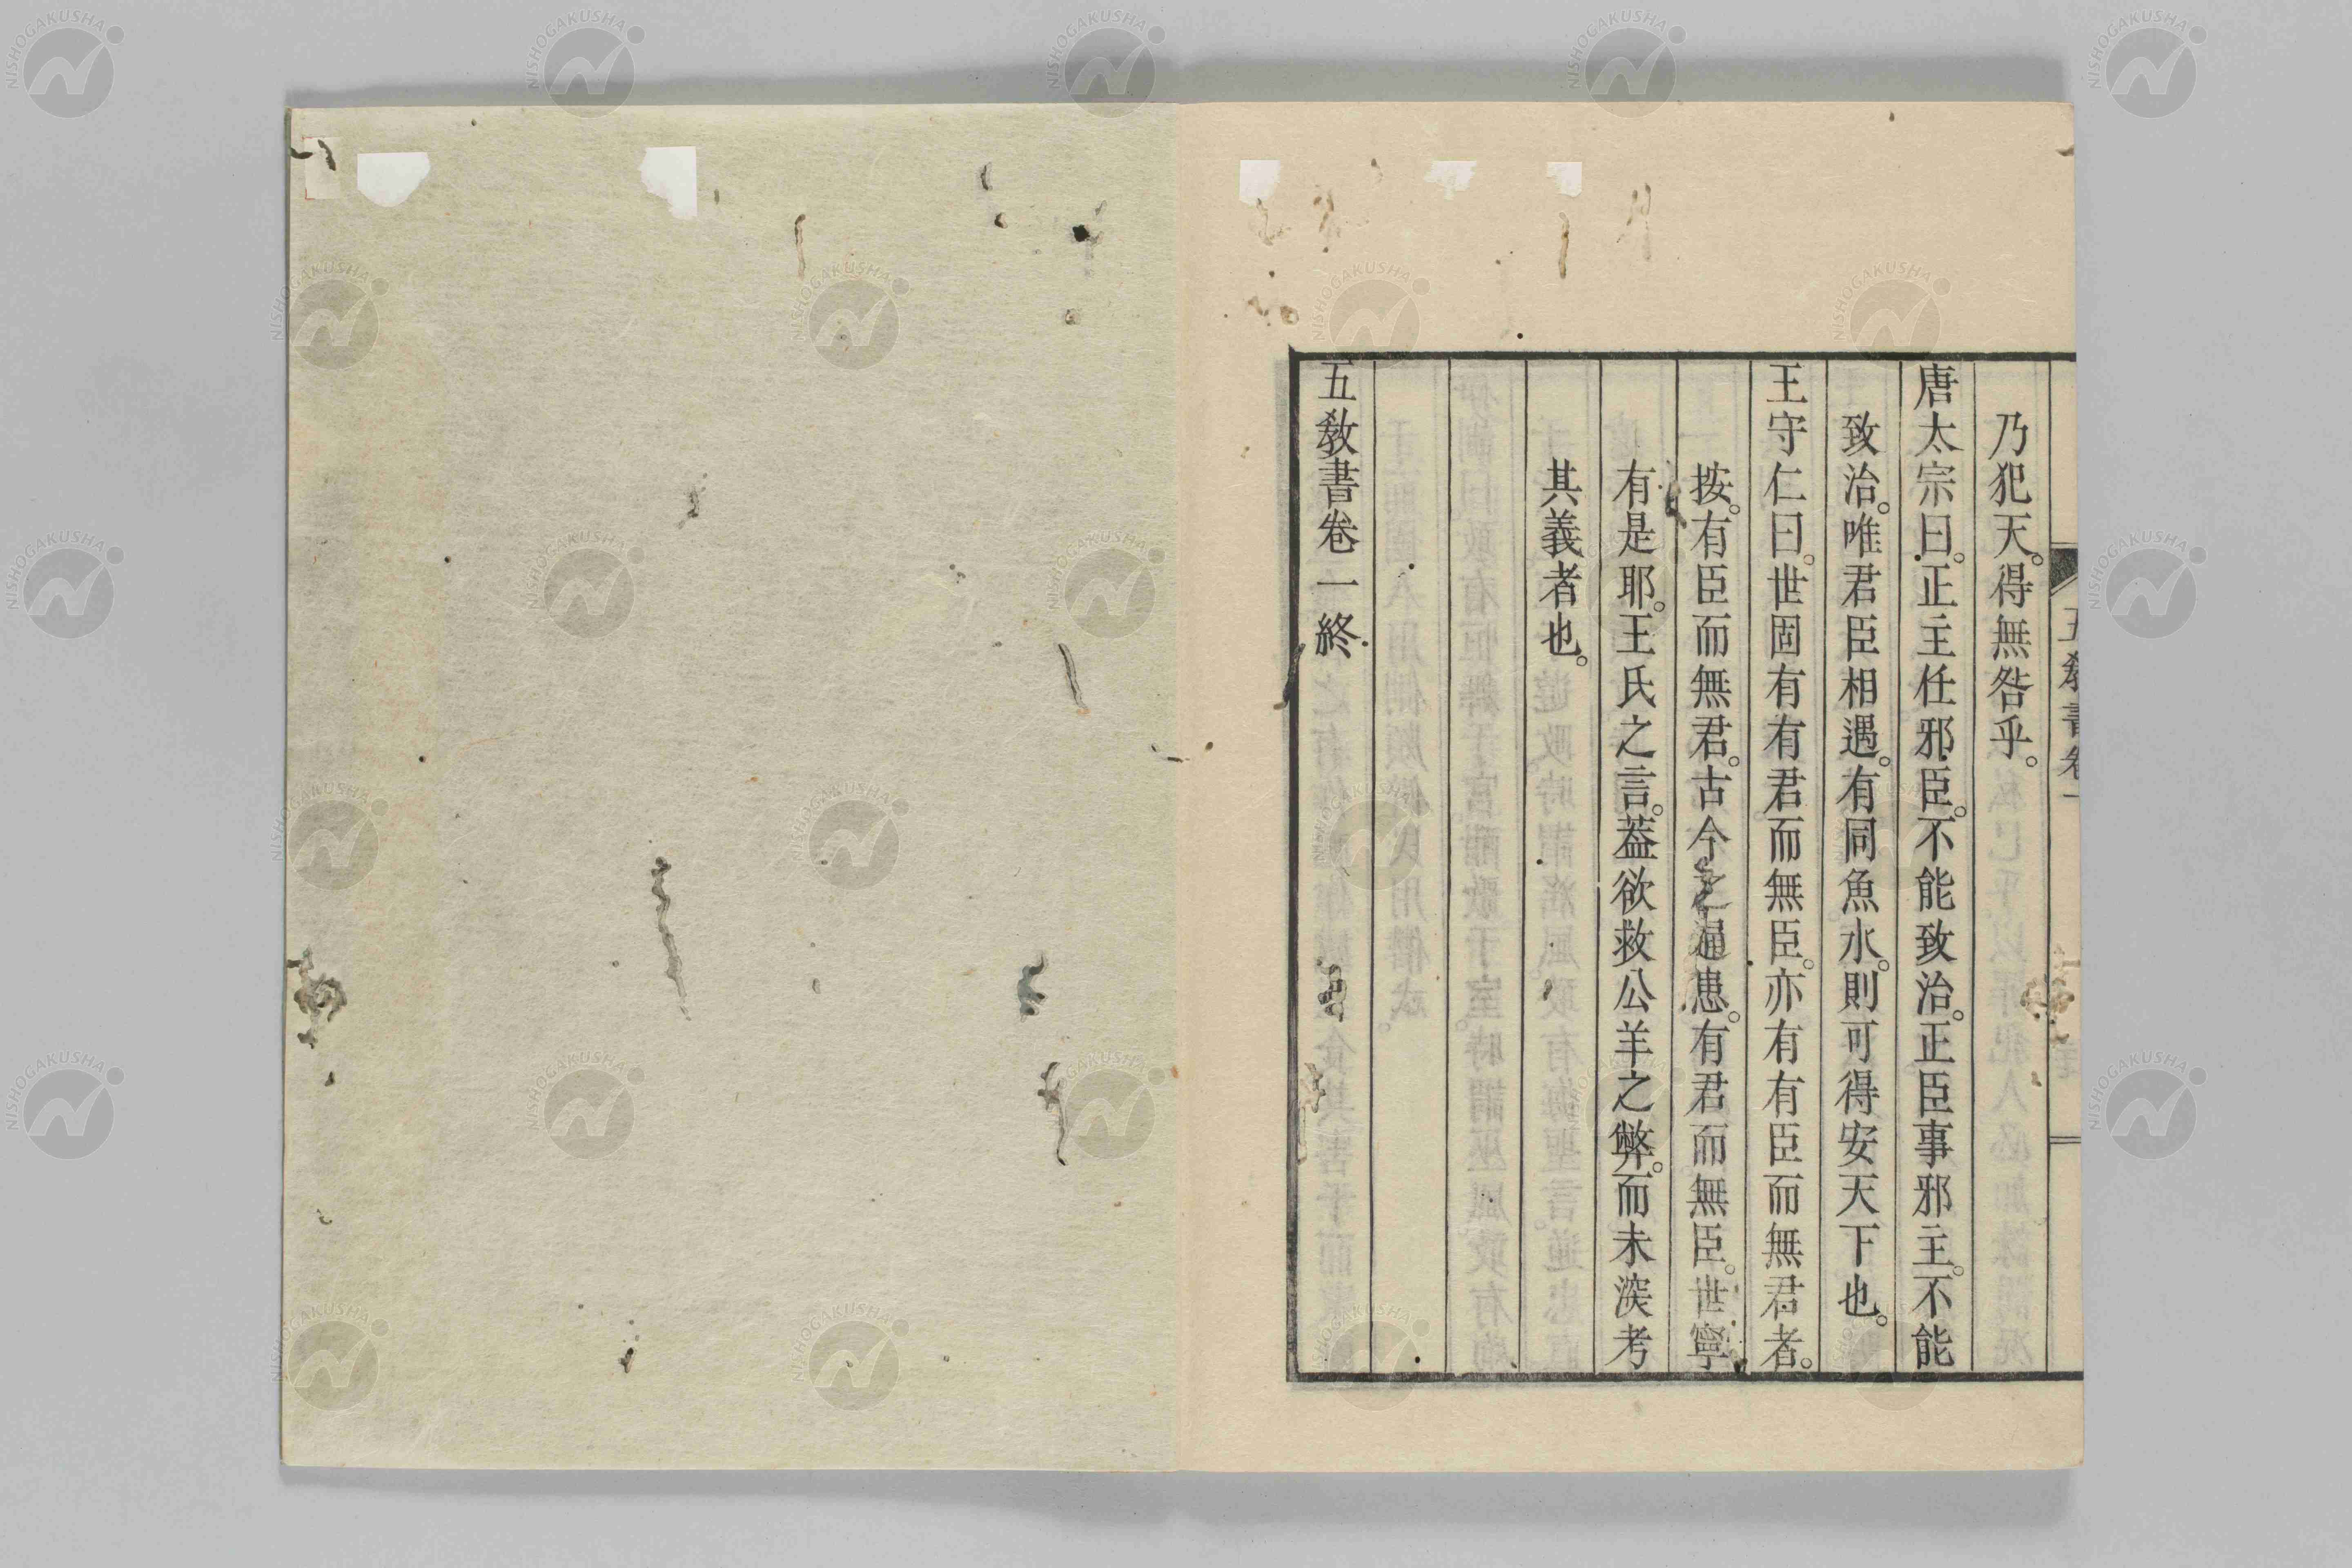 五敎書卷一
乃犯天。得無咎乎。
唐太宗曰。正主任邪臣。不能致治。正臣事邪主。不能
致治。唯君臣相遇。有同魚水。則可得安天下也。
王守仁曰。世固有有君而無臣。亦有有臣而無君者。
按。有臣而無君。古今之通患。有君而無臣。世寧
有是耶。王氏之言。蓋欲救公羊之弊。而未深考
其義者也。
五敎書卷一終
NISHOGAKUSHA